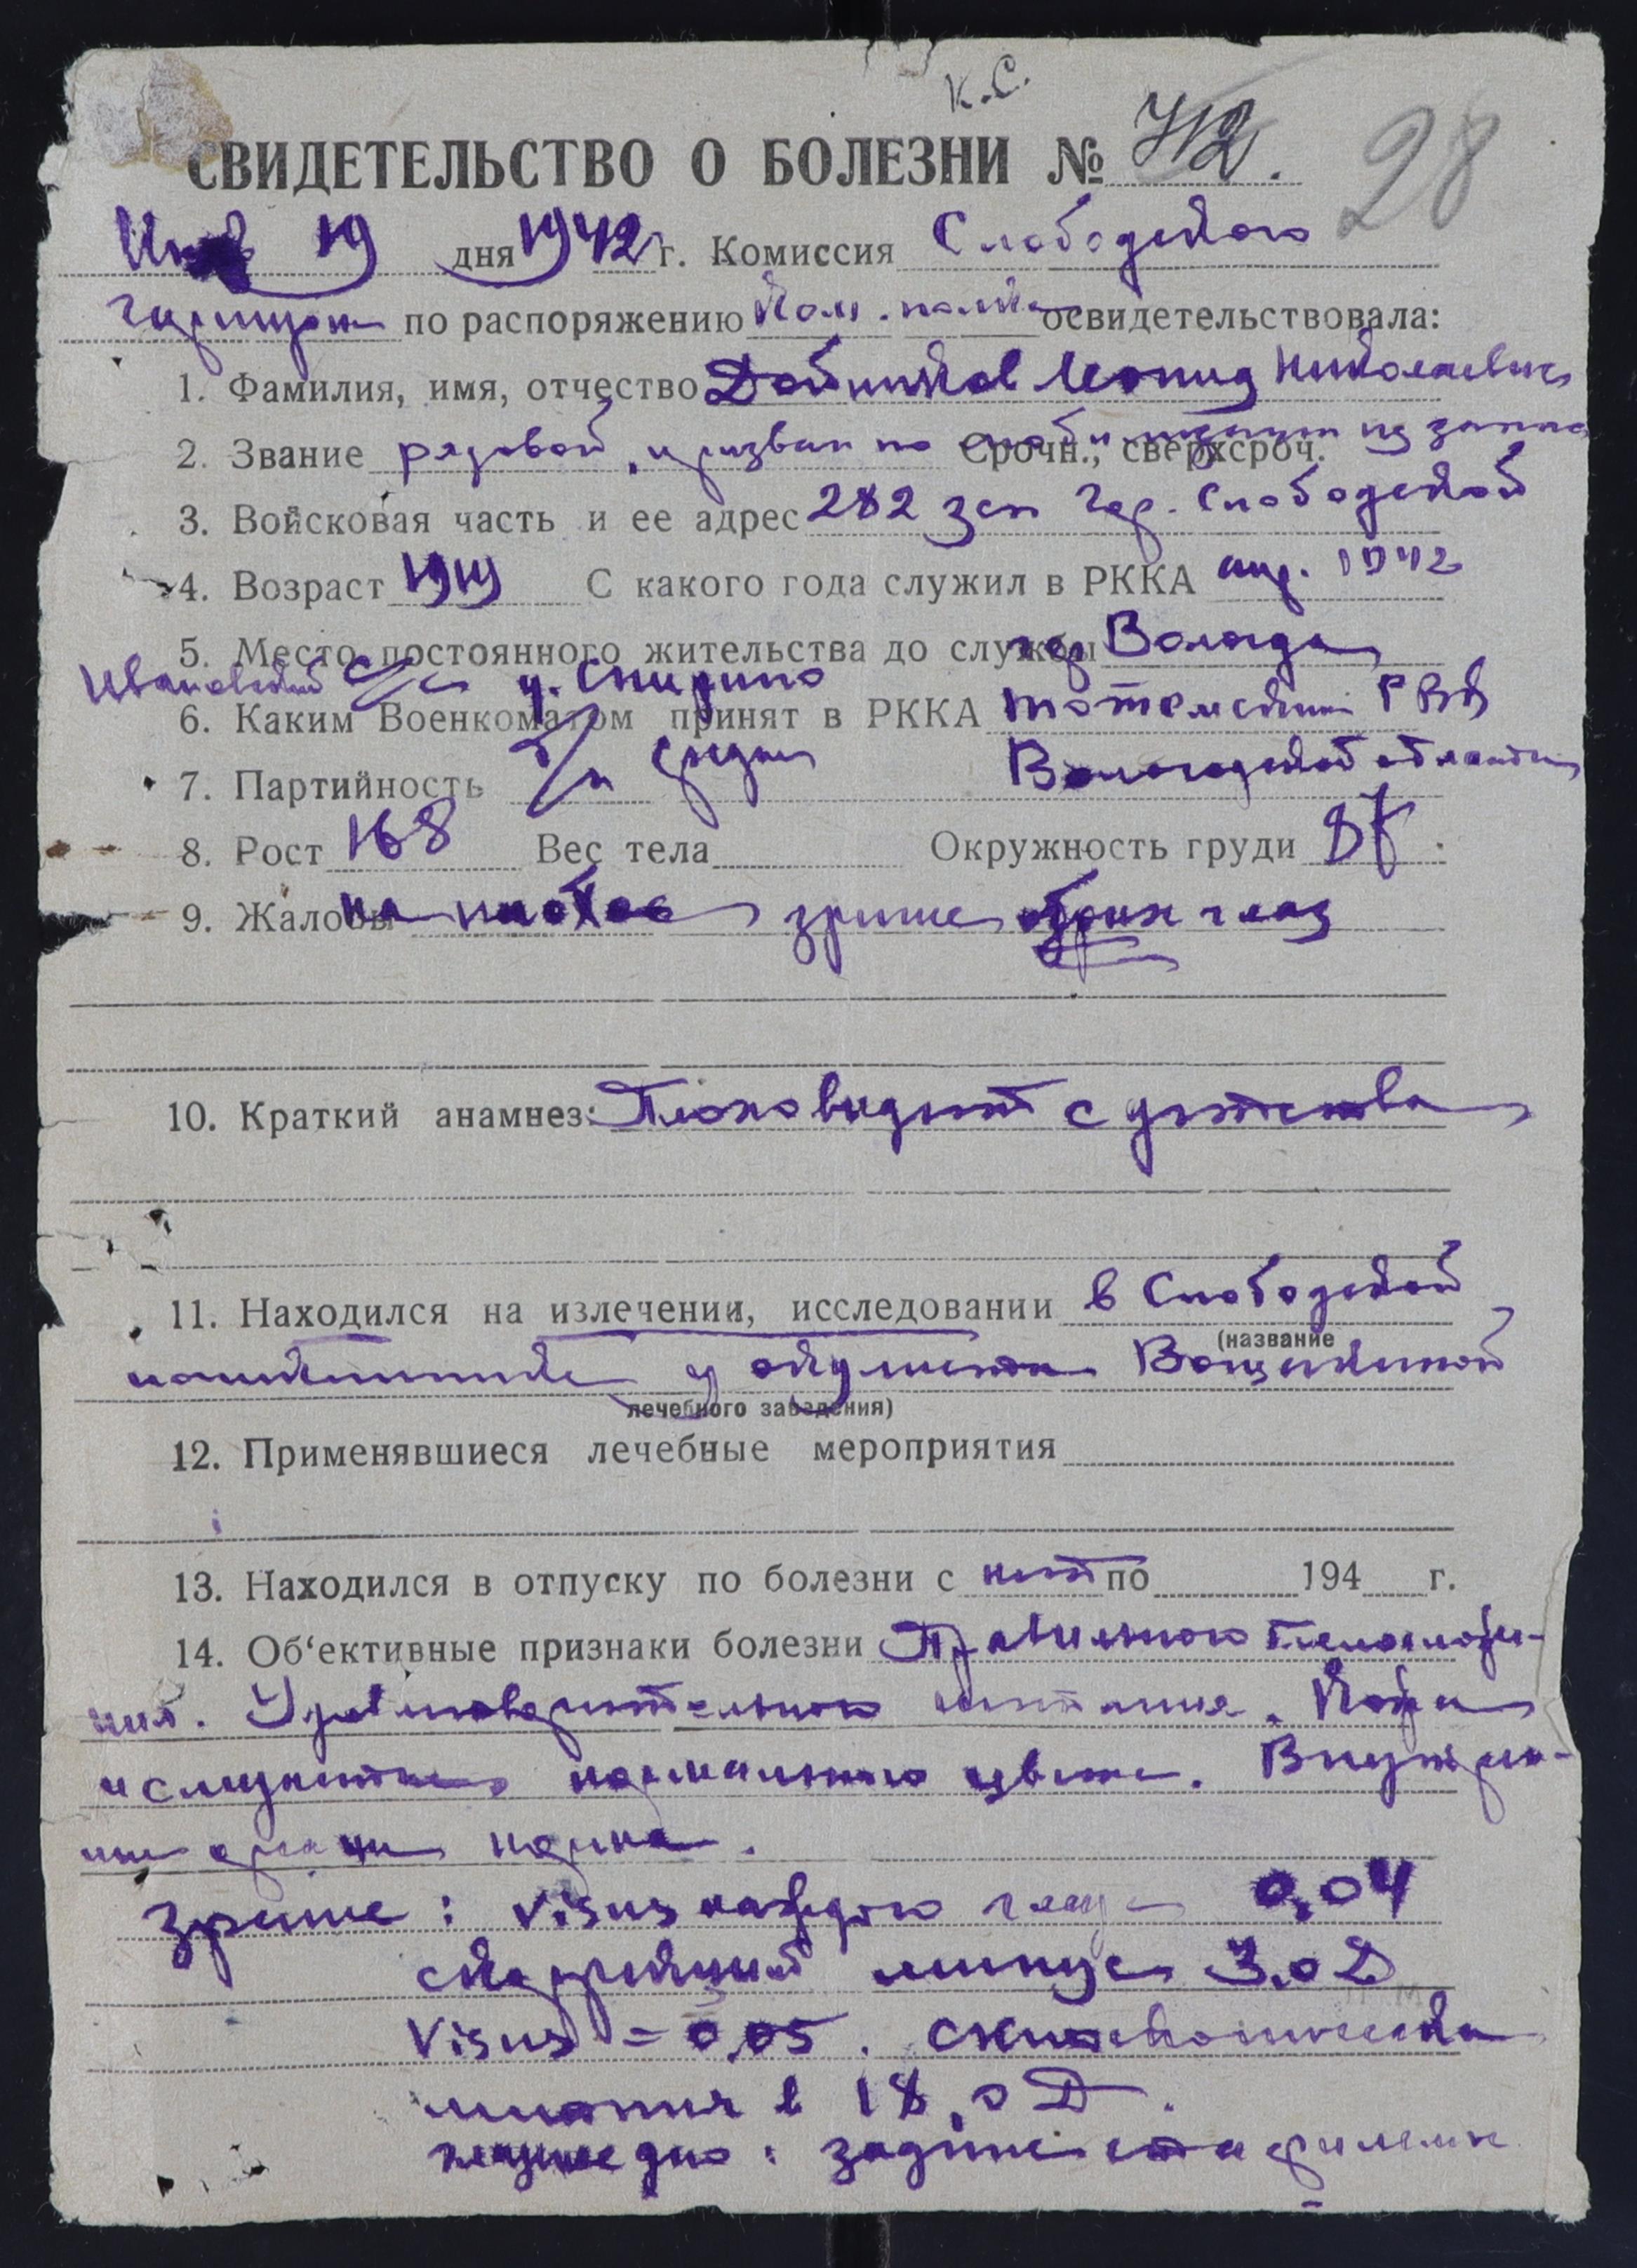 К.С.
СВИДЕТЕЛЬСТВО О БОЛЕЗНИ № 712.
28
19 дня 1942 г. Комиссия Слободского
гарнизона по распоряжению Ком. полка освидетельствовала:
1. Фамилия, имя, отчество Леонид Николаевич
2. Звание рядовой, призван по мобилизации из запаса Срочн., сверхсроч.
3. Войсковая часть и ее адрес 282 зсп гор. Слободской
4. Возраст 1919 С какого года служил в РККА апр. 1942
5. Место постоянного жительства до службы гор Вологда
Ивановский с/с д. Спирино
6. Каким Военкоматом принят в РККА Тотемским РВК
Вологодской области
7. Партийность б/п
8. Рост 168 Вес тела Окружность груди
9. Жалобы на плохое зрение обоих глаз
10. Краткий анамнез: Плохо видит с детства
11. Находился на излечении, исследовании в Слободской
(название
поликлинике у окулиста
лечебного заведения)
12. Применявшиеся лечебные мероприятия
13. Находился в отпуску по болезни с нет по 194 г.
14. Об‘ективные признаки болезни Правильного телосложе-
ния. Удовлетворительного питания. Кожа
и слизистые нормального цвета. Внутрен-
ние органы норма.
Зрение: visus каждого глаза 0,04
с коррекцией минус 3.0 D
Visus = 0,05. Скиаскопически
миопия в 18,0 D.
глазное дно: задние стафиломы